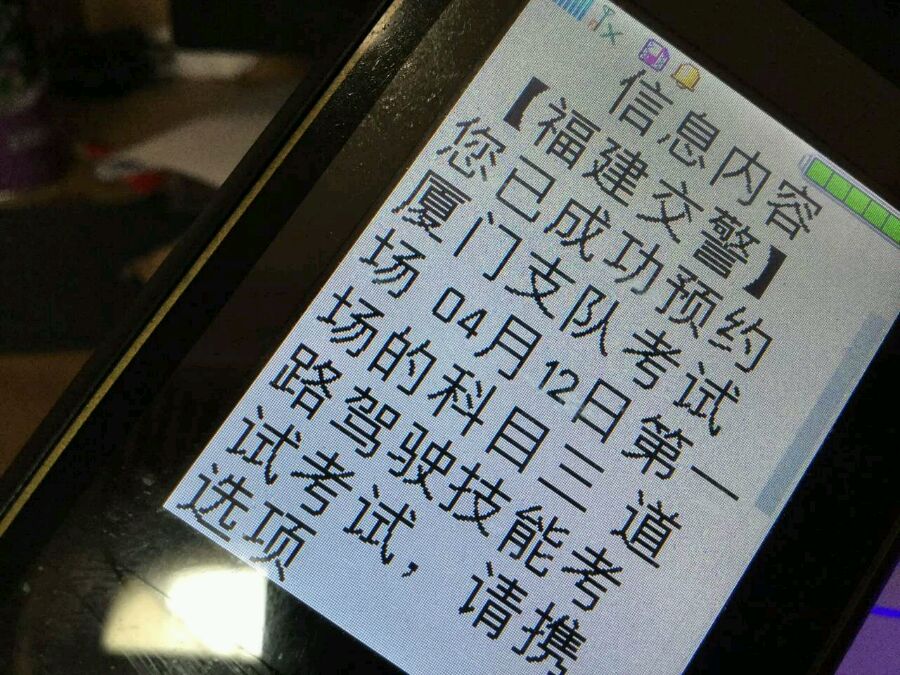 信息内容
【福建交警】
您已成功预约
厦门支队考试
场 04月12日第一
场的科目三 道
路驾驶技能考
试考试，请携
选项